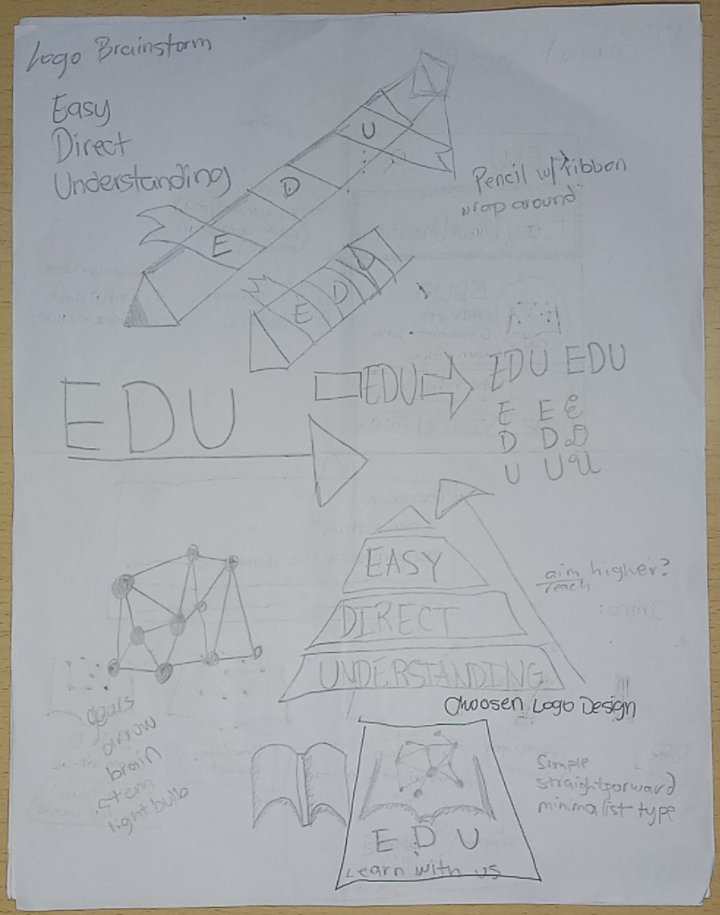 Logo Brainstorm
Easy
Direct
Understanding
E D U
Pencil w/ ribbon
wrap around
E D U
EDU
EDU
EDU EDU
E E E
D D D
U U U
EASY
DIRECT
UNDERSTANDING
aim higher?
reach
Choosen Logo Design
gears
arrow
brain
stem
light bulb
Simple
straightforward
minimalist type
E D U
Learn with us